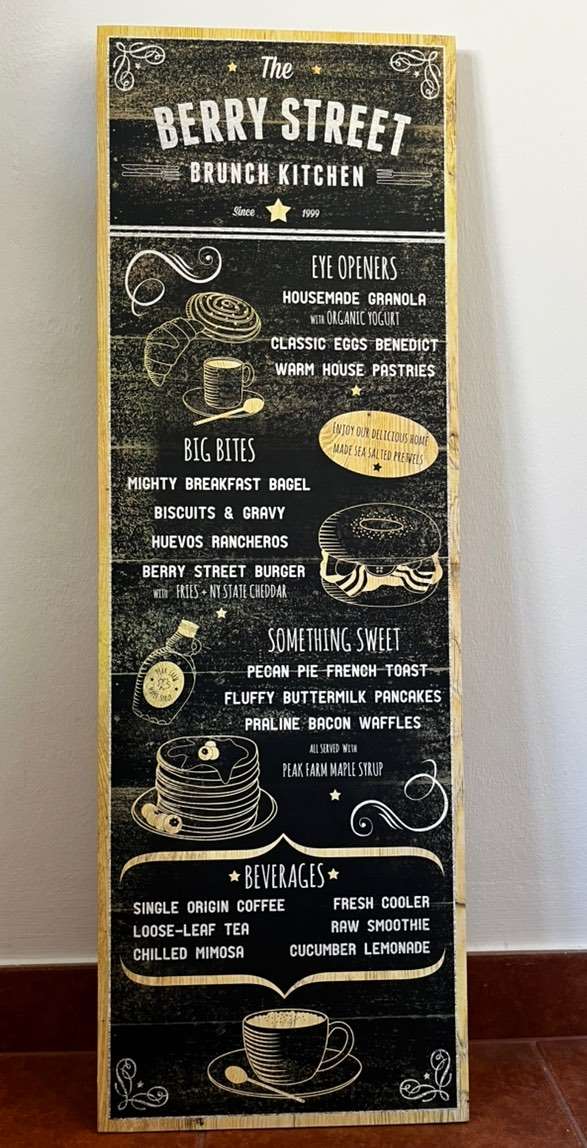 The
BERRY STREET
BRUNCH KITCHEN
Since 1999
EYE OPENERS
HOUSEMADE GRANOLA
WITH ORGANIC YOGURT
CLASSIC EGGS BENEDICT
WARM HOUSE PASTRIES
ENJOY OUR DELICIOUS HOME
MADE SEA SALTED PRETZELS
BIG BITES
MIGHTY BREAKFAST BAGEL
BISCUITS & GRAVY
HUEVOS RANCHEROS
BERRY STREET BURGER
WITH FRIES + NY STATE CHEDDAR
SOMETHING SWEET
PECAN PIE FRENCH TOAST
FLUFFY BUTTERMILK PANCAKES
PRALINE BACON WAFFLES
ALL SERVED WITH
PEAK FARM MAPLE SYRUP
PEAK FARM
BEVERAGES
SINGLE ORIGIN COFFEE FRESH COOLER
LOOSE-LEAF TEA RAW SMOOTHIE
CHILLED MIMOSA CUCUMBER LEMONADE